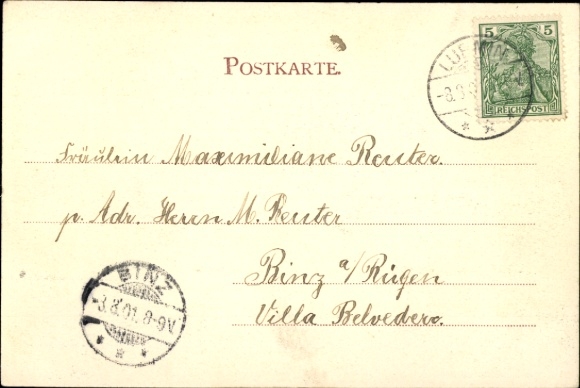 POSTKARTE.
5 5
REICHSPOST
Fräulein Maximiliane Reuter.
p. Adr. Herrn M. Reuter
Binz a/Rügen
Villa Belvedere.
BINZ
-3.8.01. 8-9V.